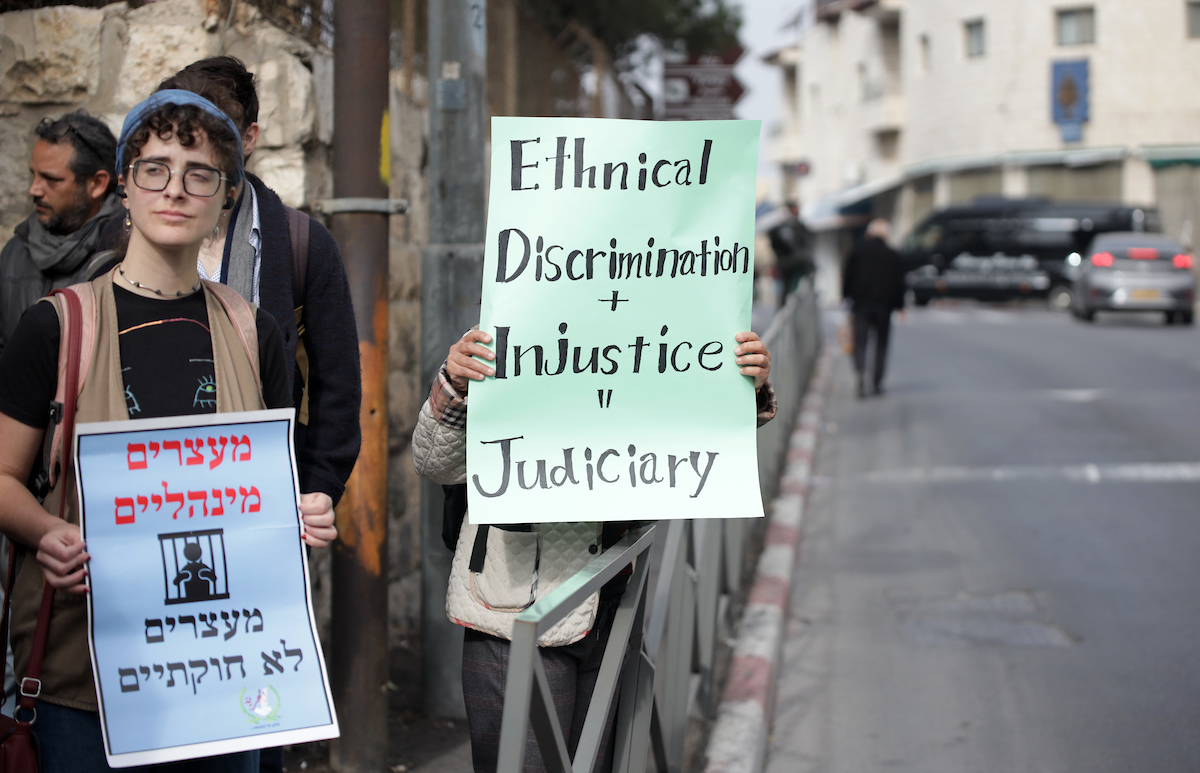 מעצרים
מינהליים
מעצרים
לא חוקתיים
Ethnical
Discrimination
+
Injustice
"
Judiciary